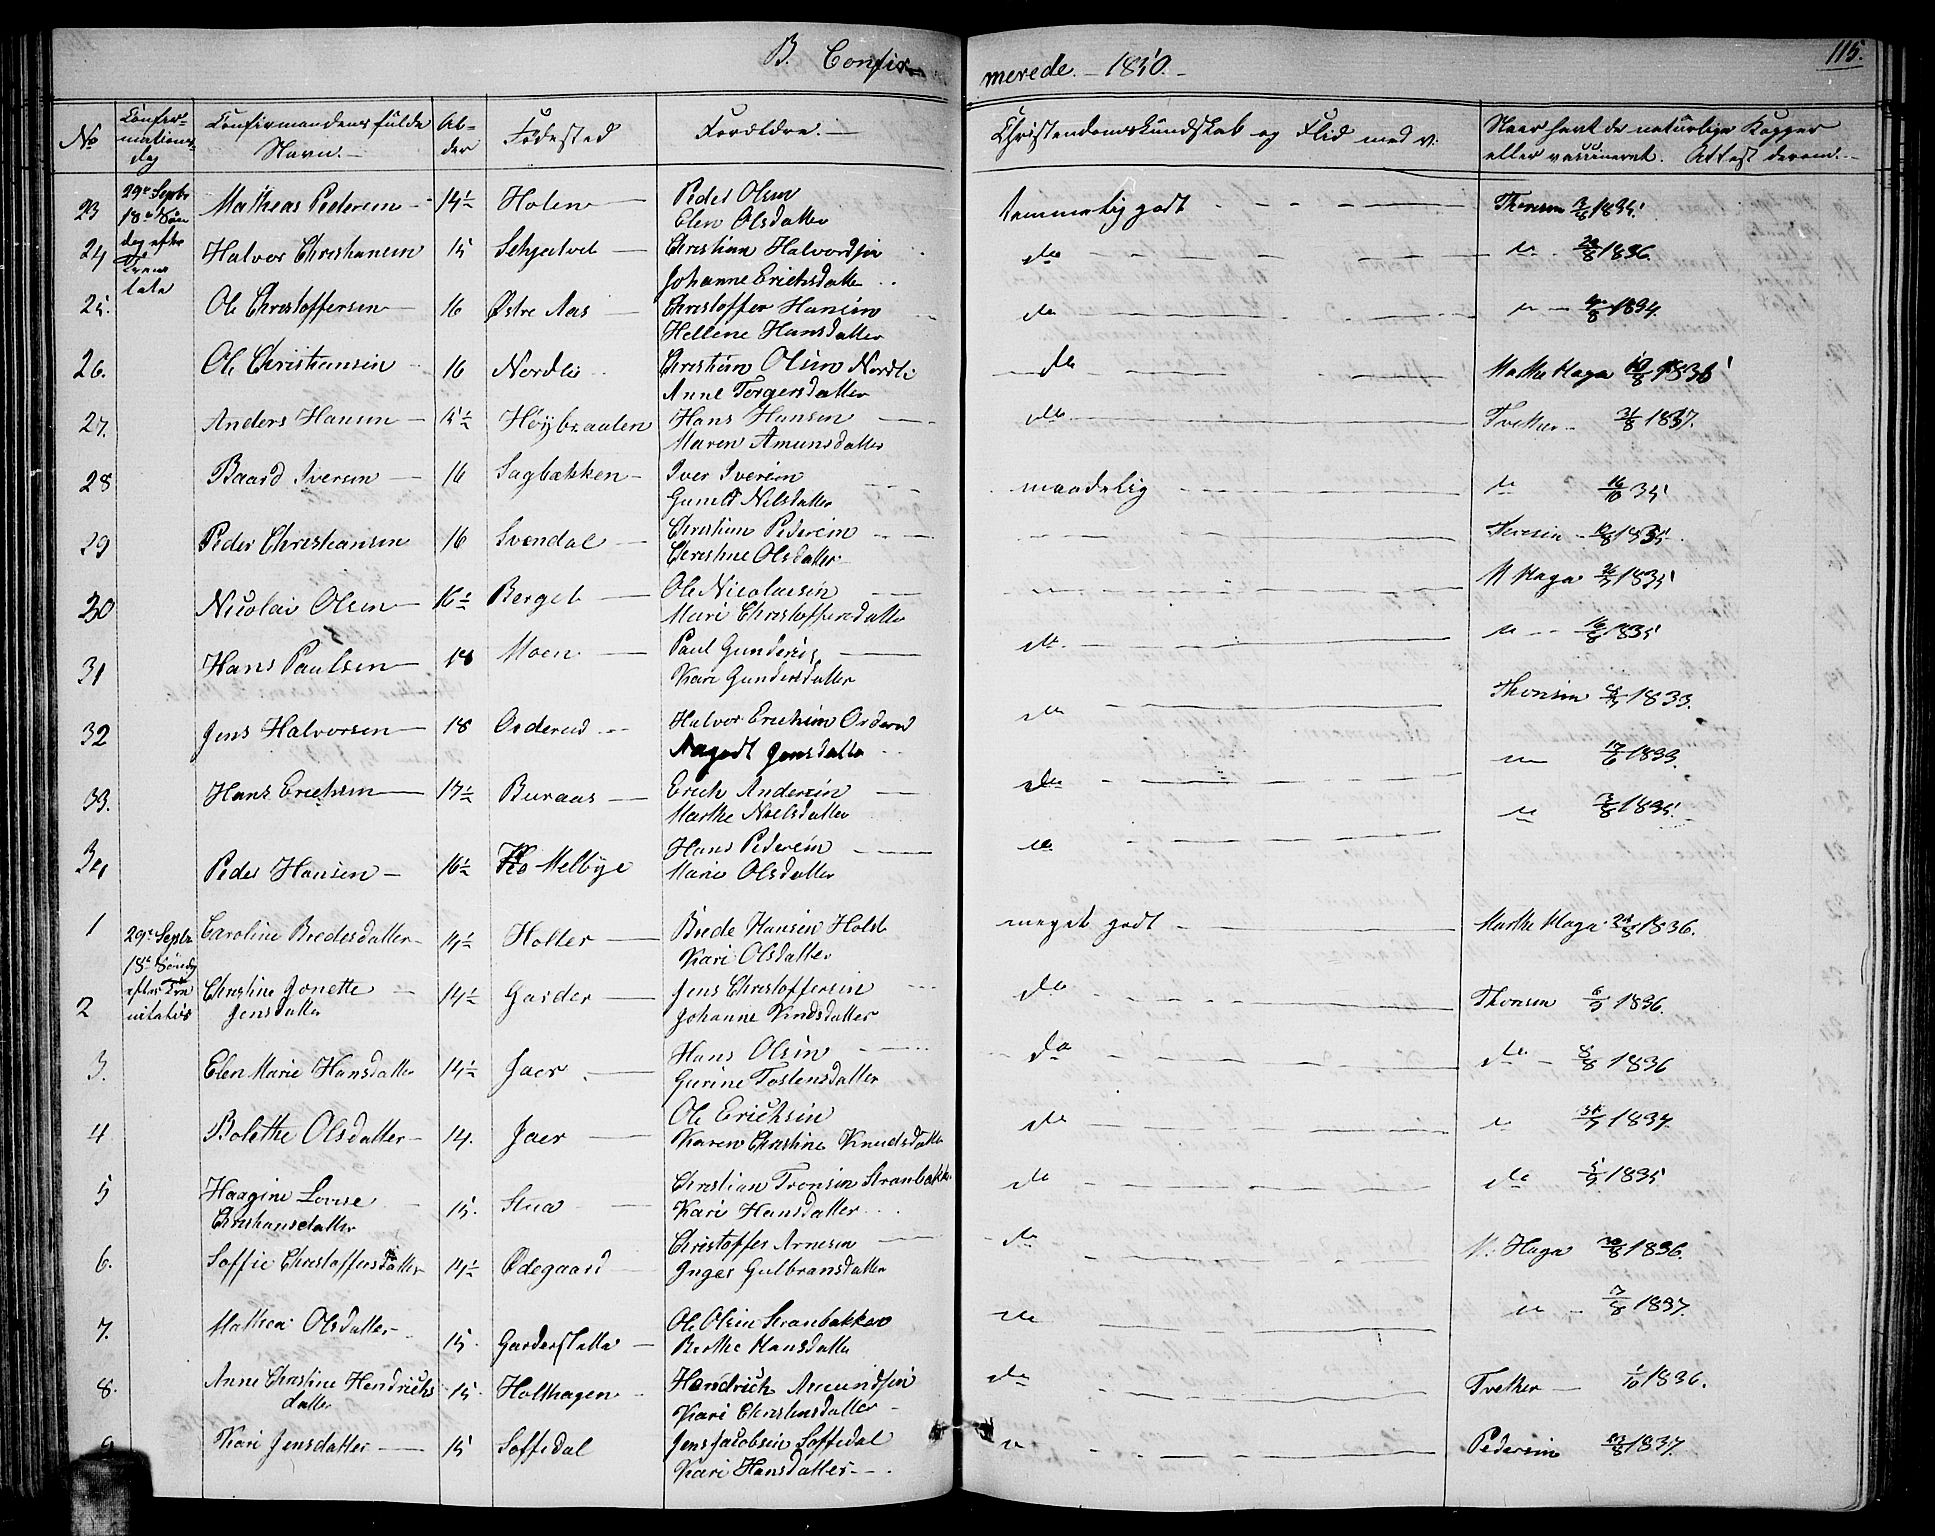 B. Confir-
merede. - 1850. -
115.
No
Confir-
mations-
dag
Confirmandens fulde
Navn. -
Al-
der
Födested
Forældre. -
Christendomskundskab og Flid med v.
Naar havt de naturlige Kopper
eller vaccineret. Attest derom. -
23 29de Septbr 18de Søn dag efter Trini tatis Mathias Pedersen - 14½ Holen Peder Olsen
Elen Olsdatter temmelig godt Thonsen 3/8 1835.
24 Halvor Christiansen 15 Christian Halvordsen
Johanne Erichsdatter do " 29/8 1836.
25. Ole Christoffersen 16 Østre Aas Christoffer Hansen
Hellene Hansdatter do " 1834.
26. Ole Christiansen 16 Nordlie Christian Olsen Nordli
Anne Torgersdatter do Marthe Haga 1836
27. Anders Hansen 15½ Höybraaten Hans Hansen
Maren Amundsdatter do Tvether 31/8 1837.
28 Baard Iversen 16 Sagbakken Iver Iversen
Nilsdatter maadelig " 16/10 35
29 Peder Christiansen 16 Svendal Christian Pedersen
Christine Olsdatter 1835.
30 Nicolai Olsen 16½ Berget Ole Nicolaisen
Mari Christoffersdatter M Haga 1835
31 Hans Paulsen 18 Moen Paul Gundersen
Kari Gundersdatter do. " 16/8 1835
32 Jens Halvorsen 18 Orderud Halvor Erichsen Orderud
Jensdatter do Thonsen 1833.
33. Hans Erichsen 17½ Buraas Erich Andersen
Marthe Nielsdatter do " 17/6 1833.
34 Peder Hansen 16½ Melbye Hans Pedersen
Marie Olsdatter do " 3/8 1835.
1 29de Septbr 18de Søndag efter Trinitatis Caroline Bredesdatter 14½ Holter Brede Hansen Holst
Kari Olsdatter meget godt Marthe Haga 1836.
2 Christine Jonette
Jensdatter 14½ Garder Jens Christoffersen
Johanne Knudsdatter do Thonsen 6/9 1836.
3. Elen Marie Hansdatter 14½ Jaer Hans Olsen
Gurine Tostensdatter do do 8/8 1836
4 Bolethe Olsdatter 14. Jaer Ole Erichsen
Karen Christine Knudsdatter do " 1837.
5 Haagine Lovise
Christiansdatter 15. Stua Christian Tronsen Stranbakke
Kari Hansdatter do do 5/9 1835
6. Soffie Christoffersdatter 14½ Ødegaard Christoffer Arnesen
Inger Gulbransdatter do M. Haga 30/8 1836.
7. Mathea Olsdatter 15. Garderslatta Ole Olsen Stranbakken
Berthe Hansdatter do " 7/8 1837.
8. Anne Christine Hendrichs
datter 15. Holthagen Hendrich Amundsen
Kari Christensdatter do Tvether 1/10 1836.
9 Kari Jensdatter 15 Soffedal Jens Jacobsen Soffedal
Kari Hansdatter " Pedersen 1837.